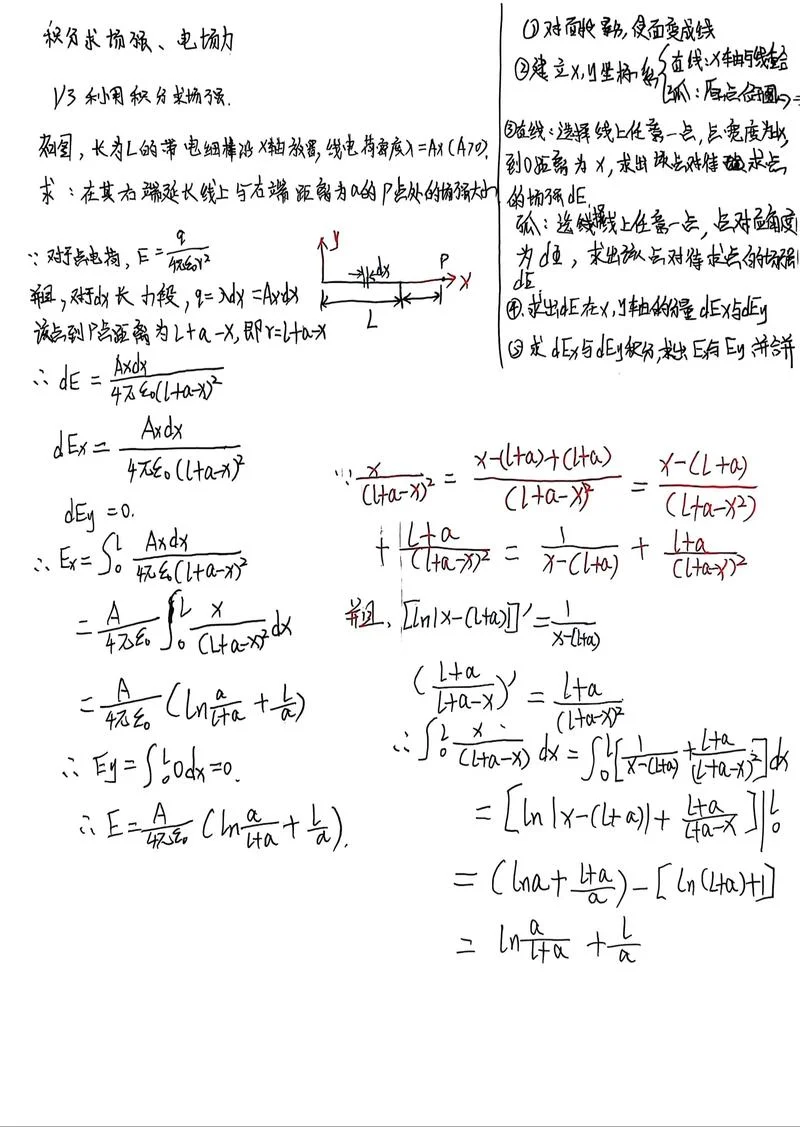 积分求场强、电场力
1/3 利用积分求场强.
如图,长为L的带电细棒沿x轴放置,线电荷密度λ=Ax(A>0).
求:在其右端延长线上与右端距离为a的P点处的场强大小
∵对于点电荷, E=q/4πε₀r²
并且,对于dx长小段, q=λdx=Axdx
该点到P点距离为L+a-x,即r=L+a-x
y
dx
P
x
L
∴ dE = Axdx/4πε₀(L+a-x)²
dEx = Axdx/4πε₀(L+a-x)²
dEy=0.
∴ Ex=∫₀ᴸ Axdx/4πε₀(L+a-x)²
= A/4πε₀ ∫₀ᴸ x/(L+a-x)² dx
= A/4πε₀ (ln a/L+a + L/a)
∴ Ey=∫₀ᴸ0dx=0.
∴ E=A/4πε₀ (ln a/L+a + L/a).
①对面收割,侵面变成线
②建立x,y坐标系
直线:x轴与线重合
弧:原点位圆
③直线:选择线上任意一点,点宽度为dx,
到0距离为x,求出该点对待求点
的场强dE.
弧:选择线上任意一点,点对应角度
为dΦ,求出该点对待求点的场强
dE.
④.求出dE在x,y轴的分量dEx与dEy
⑤求dEx与dEy积分,求出Ex与Ey,并合并
∵ x/(L+a-x)² = x-(L+a)+(L+a)/(L+a-x)² = x-(L+a)/(L+a-x²)
+ L+a/(L+a-x)² = 1/x-(L+a) + L+a/(L+a-x)²
并且, [ln|x-(L+a)|]′=1/x-(L+a)
(L+a/L+a-x)′ = L+a/(L+a-x)²
∴ ∫₀ᴸ x/(L+a-x) dx = ∫₀ᴸ[1/x-(L+a) + L+a/(L+a-x)²]dx
= [ln|x-(L+a)| + L+a/L+a-x]|₀ᴸ
= (lna+L+a/a)-[ln(L+a)+1]
= ln a/L+a + L/a